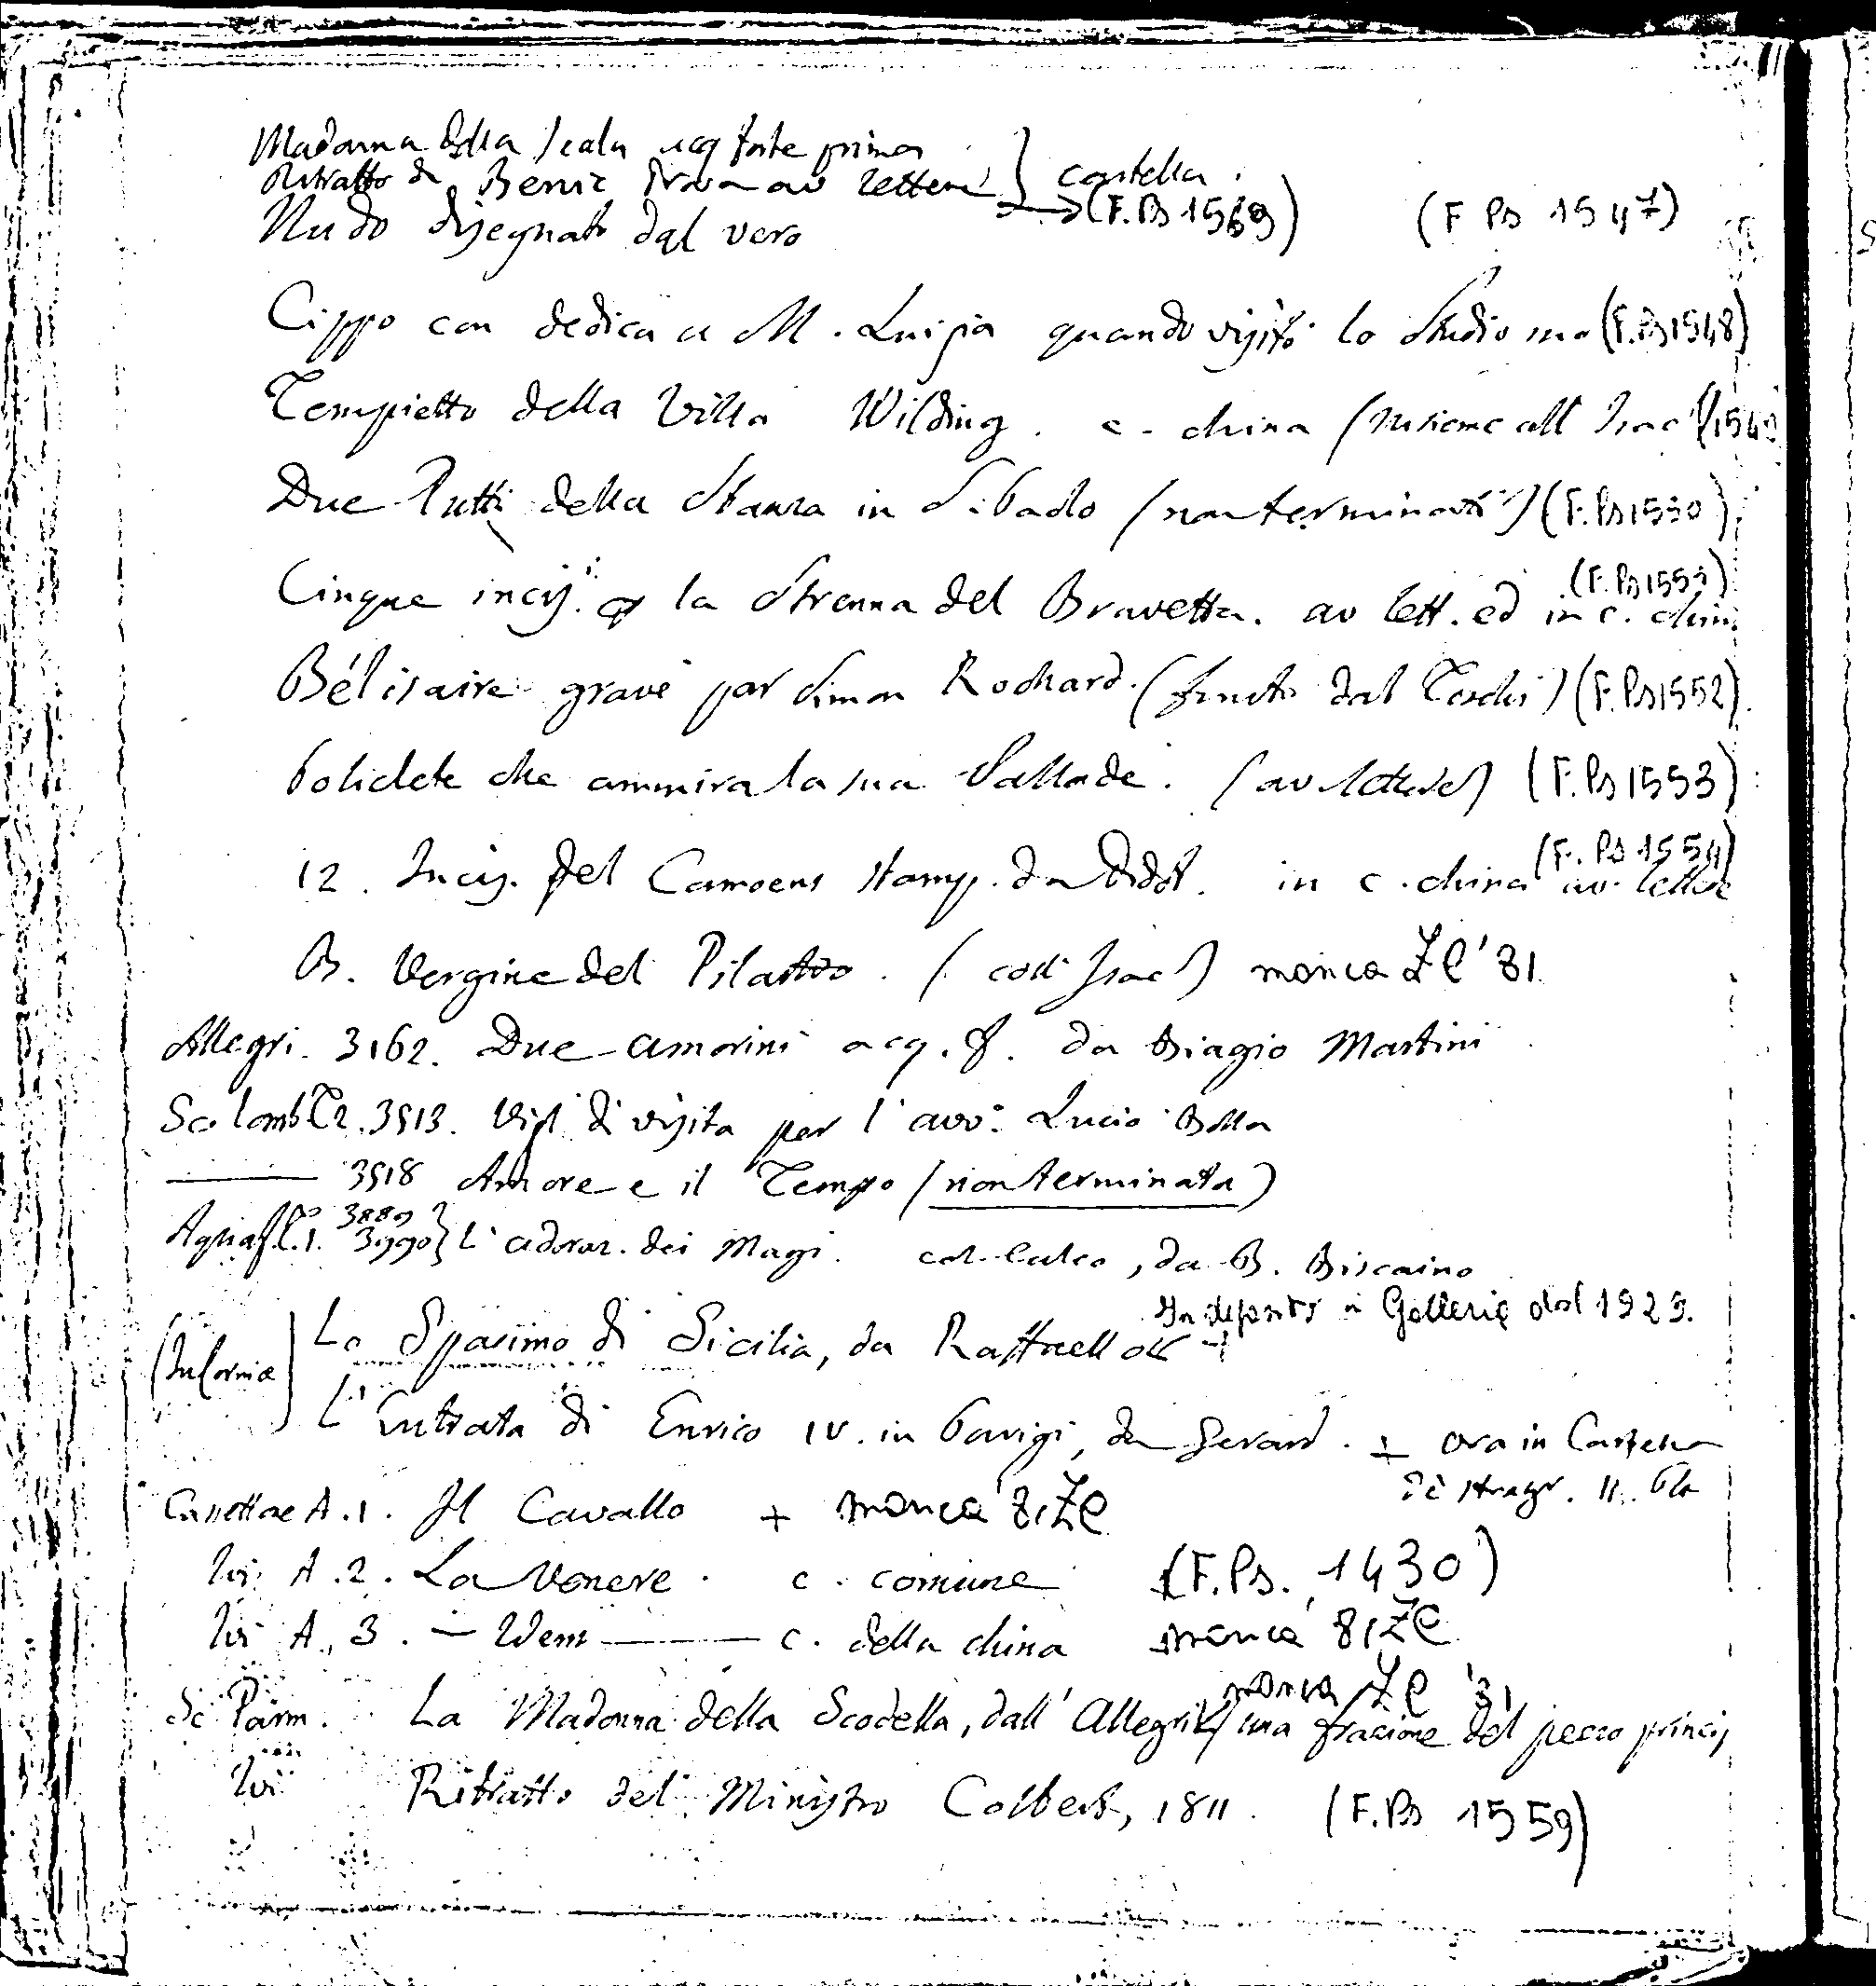 Madonna della Scala acq forte prima
Ritratto di Bervic prova av lettere } cartella.
Nudo disegnato dal vero → (F.Ps 1569) (F Ps 1547)
Cippo con dedica a M. Luigia quando visitò lo Studio (F.Ps 1548)
Tempietto della Villa Wilding. c. china (insieme all' Isac)
Due Putti della Stanza in S. Paolo (non terminati) (F.Ps 1550)
(F.Ps 1551)
Cinque incis.i la Strenna del Bravetta. av lett. ed in c. chin
Bélisaire gravé par Simon Rochard. (finito dal Toschi) (F.Ps 1552)
Policlete che ammira la sua Pallade. (av lettere) (F.Ps 1553)
(F. Ps 1554)
12. Incis. del Camoens stamp. da Didot. in c. china av. lettere
B. Vergine del Pilastro. (coll' Isac) manca ZC '81
Allegri. 3162. Due amorini acq. f. da Biagio Martini
Sc. lomb T2. 3513. Vigl. di visita per l' avv.o Lucio Bolla
——— 3518 Amore e il Tempo (non terminata)
3889
3990 } L' adoraz. dei Magi. da B. Biscaino
In deposito in Galleria dal 1929.
(In cornice) Lo Spasimo di Sicilia, da Raffaello +
L' Entrata di Enrico IV. in Parigi, da Gerard. + ora in Cartella
Cassettac A.1. Il Cavallo + manca 81 ZC
Ivi A.2. La Venere. c. comune (F.Ps. 1430)
Ivi A. 3. — Idem ——— c. della china manca 81 ZC
manca ZC '81
Sc Parm. La Madonna della Scodella, dall' Allegri (una frazione del pezzo princip
Ivi Ritratto del Ministro Colbert, 1811. (F.Ps 1559)